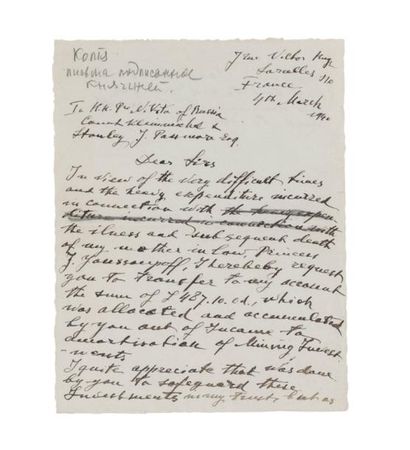 Копія
письма подписанное
Княгиней.
Victor Hugo
France
4th March
1940
To H.H. Pce Nikita of Russia
Count Kleinmichel &
Stanley J. Passmore Esq
Dear Sirs
In view of the very difficult times
and the heavy expenditure incurred
in connection with the heavy expen
diture incurred in connection with
the illness and subsequent death
of my mother in law, Princess
Z. Youssoupoff, I hereby request
you to transfer to my account
the sum of £ 487.10.0d, which
was allocated and accumulated
by you out of Income to
amortisation of Mining Invest
-ments
I quite appreciate that was done
by you to safeguard these
Investments in my Trust, but as